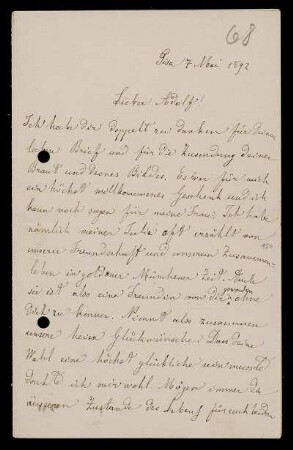 68
Pisa 7 Mai 1892
Lieber Adolf!
Ich habe dir doppelt zu danken für deinen
lieben Brief und für die Zusendung deiner
Braut und deines Bildes. Es war für mich
ein höchst willkommenes Geschenk und ich
kann noch sagen für meine Frau. Ich habe
nämlich meiner Julia oft erzählt von
unserer Freundschaft und unserem Zusammen-
leben in goldener Münchener Zeit. Auch
sie ist also eine Freundin von dir geworden ohne
dich zu kennen. Nimmt also zusammen
unsere herzl Glückwünsche. Dass deine
Wahl eine höchst glückliche sein musste
dachte ich mir wohl. Mögen immer die
äusseren Zustände des Lebens für euch beiden